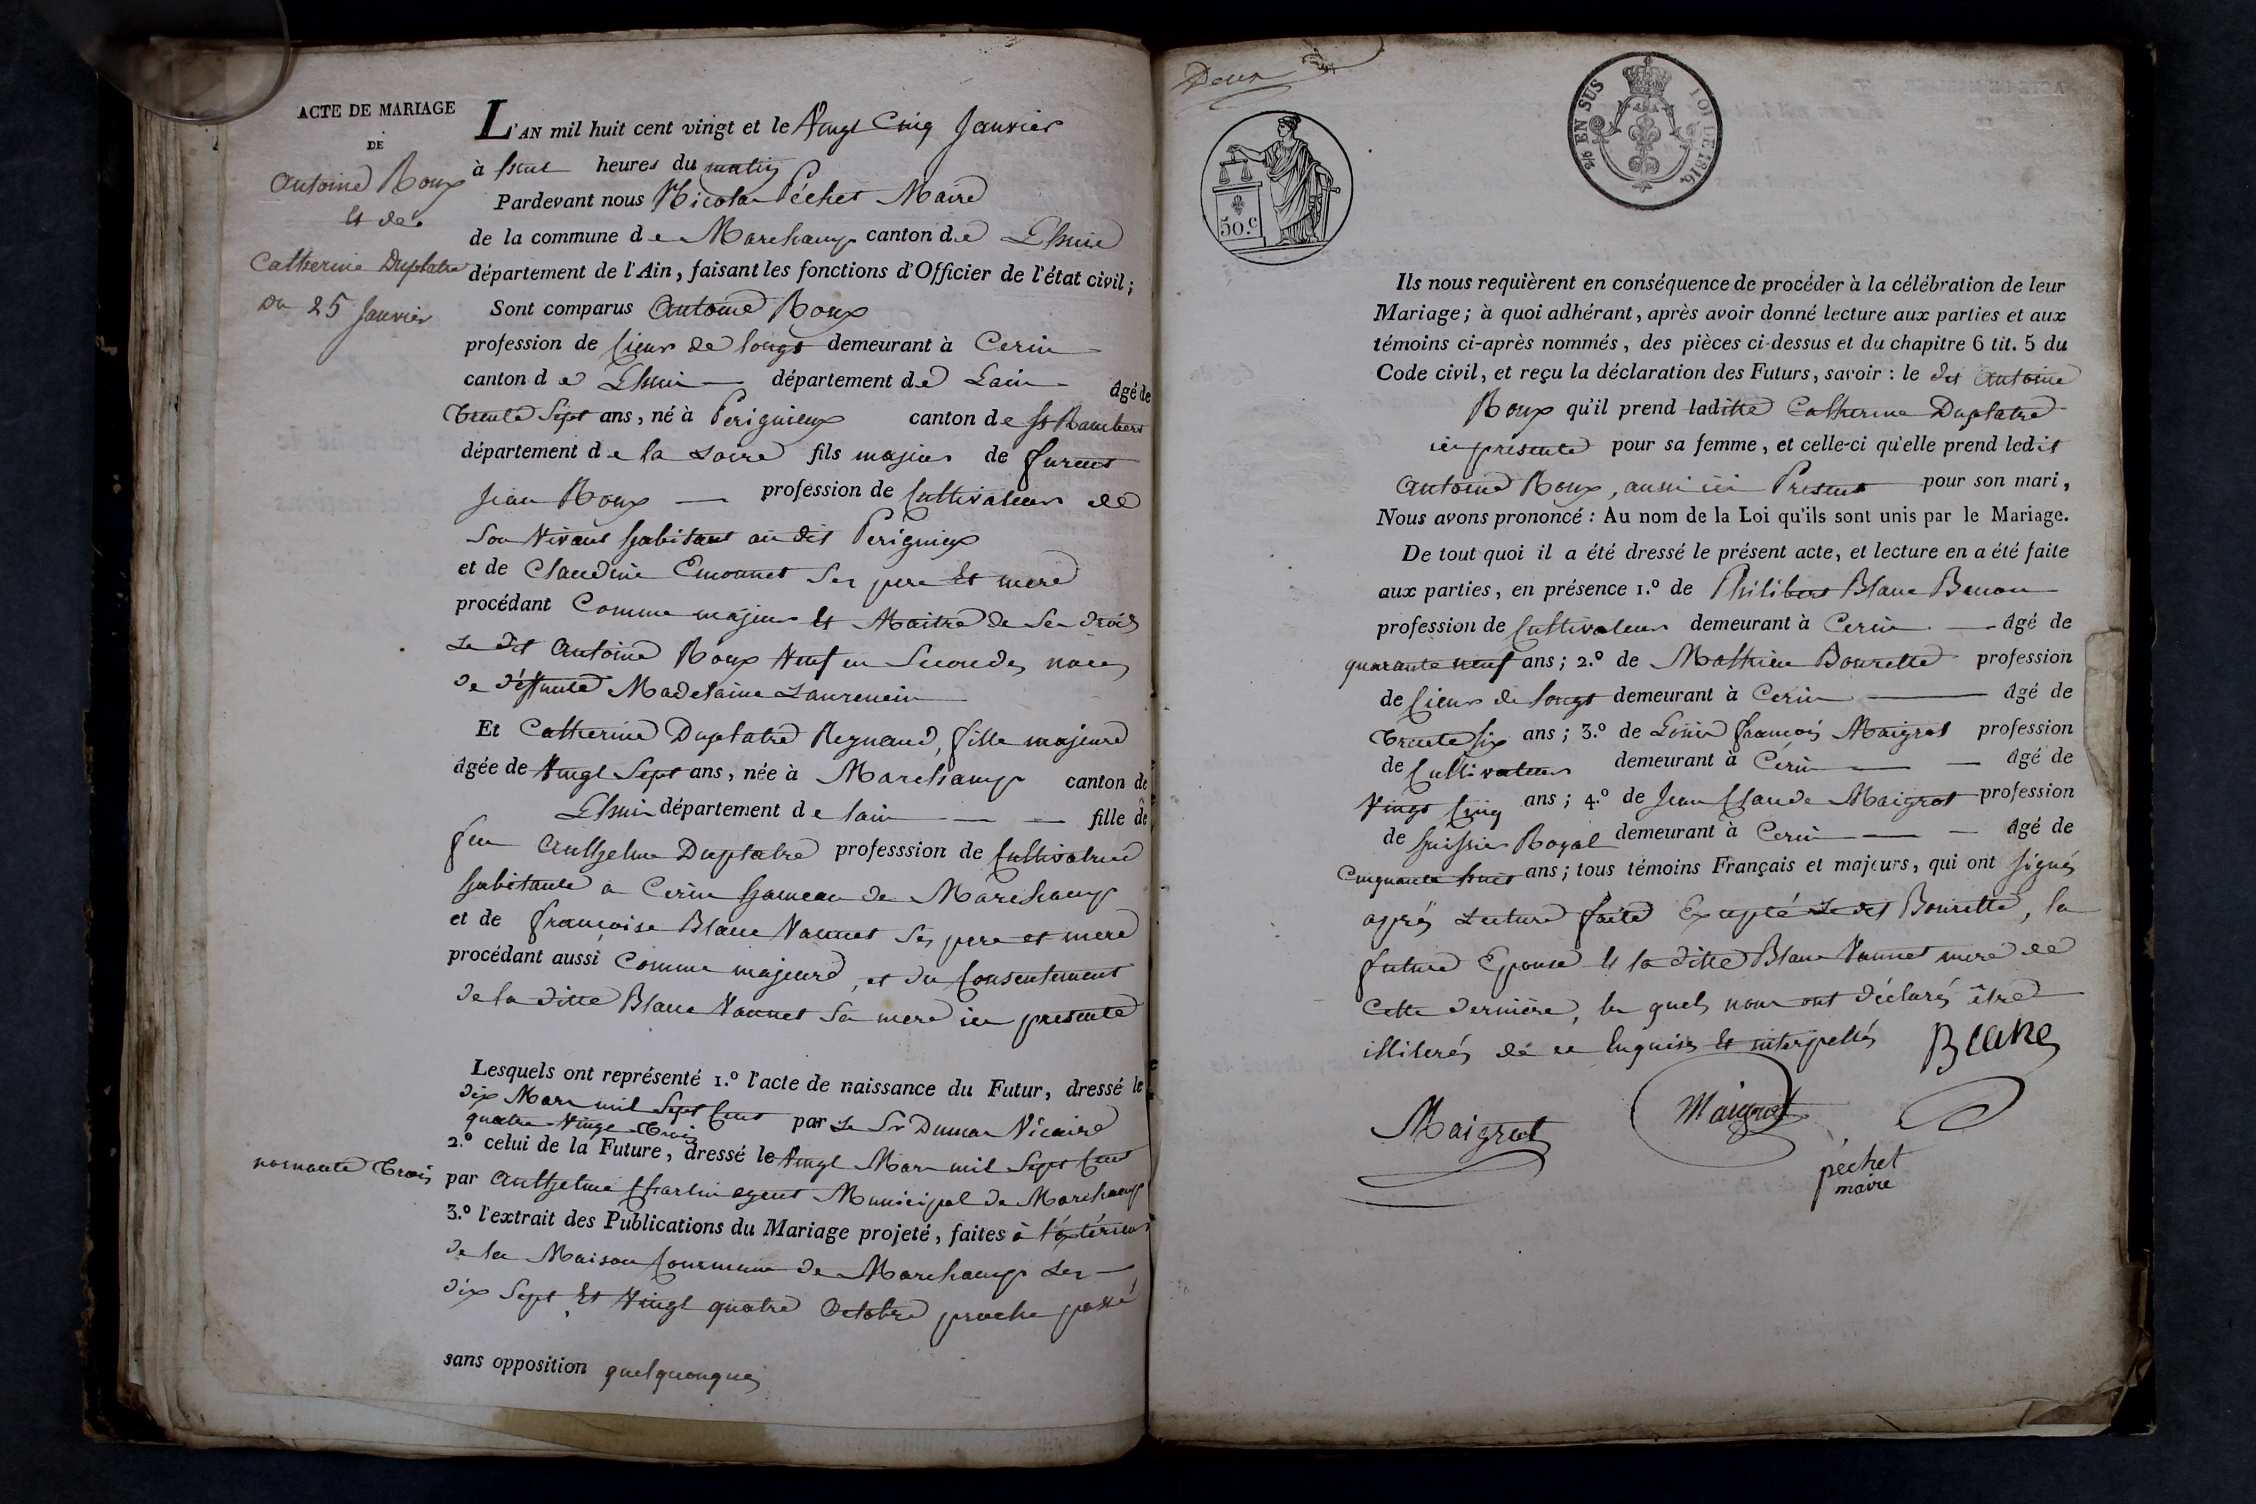 ACTE DE MARIAGE
DE
Antoine Roux
Et de
Catherine Duplatre
Du 25 Janvier
L'AN mil huit cent vingt et le Vingt Cinq Janvier
à huit heures du matin
Pardevant nous Nicolas Péchet Maire
de la commune de Marchamp canton de Lhuis
département de l'Ain, faisant les fonctions d'Officier de l'état civil;
Sont comparus Antoine Roux
profession de scieur de longs demeurant à Cerin
canton de Lhuis département de Lain âgé de
trente Sept ans, né à Perignieux canton de St Rambert
département de la Loire fils majeur de furent
Jean Roux profession de Cultivateur de
Son Vivant habitant au dit Perignieux
et de Claudine Emonnet Ses pere Et mere
procédant Comme majeur Et Maitre de Ses droits
Le dit Antoine Roux Veuf en Secondes noces
de déffunte Madelaine Laurencin
Et Catherine Duplatre Reynaud, fille majeure
âgée de Vingt Sept ans, née à Marchamp canton de
Lhuis département de lain fille de
feu Anthelme Duplatre professsion de Cultivatrice
habitante a Cerin hameau de Marchamp
et de françoise Blanc Vannet Ses pere et mere
procédant aussi Comme majeure, et du Consentement
de la ditte Blanc Vannet Sa mere ici presente
Lesquels ont représenté 1.º l'acte de naissance du Futur, dressé le
dix Mars mil Sept Cent
quatre Vingt Trois par Le Sr Dumas Vicaire
2.º celui de la Future, dressé le Vingt Mars mil Sept Cent
nonante Trois
par Anthelme Charlin agent Municipal de Marchamp
3.º l'extrait des Publications du Mariage projeté, faites à l'éxtérieur
de la Maison Commune de Marchamp Les
dix Sept Et Vingt quatre Octobre proche passé
sans opposition quelquonques
Deux
50.c
EN SUS
LOI DE 1816.
Ils nous requièrent en conséquence de procéder à la célébration de leur
Mariage; à quoi adhérant, après avoir donné lecture aux parties et aux
témoins ci-après nommés, des pièces ci-dessus et du chapitre 6 tit. 5 du
Code civil, et reçu la déclaration des Futurs, savoir: le dit Antoine
Roux qu'il prend laditte Catherine Duplatre
ici présente pour sa femme, et celle-ci qu'elle prend ledit
Antoine Roux, aussi ici Present pour son mari,
Nous avons prononcé: Au nom de la Loi qu'ils sont unis par le Mariage.
De tout quoi il a été dressé le présent acte, et lecture en a été faite
aux parties, en présence 1.º de Philibert Blanc Benon
profession de Cultivateur demeurant à Cerin âgé de
quarante neuf ans; 2.º de Mathieu Bourette profession
de scieur de longs demeurant à Cerin âgé de
trente six ans; 3.º de Louis françois Maigrot profession
de Cultivateur demeurant à Cerin âgé de
Vingt Cinq ans; 4.º de Jean Claude Maigrot profession
de huissier Royal demeurant à Cerin âgé de
Cinquante huit ans; tous témoins Français et majeurs, qui ont signés
après Lecture faite Excepté Le dit Bourette, la
future Epouse Et la ditte Blanc Vannet mere de
Cette dernière, les quels nous ont déclarés être
illiterés de ce Enquis Et interpellés
Blanc
Maigrot
Maigrot
péchet
maire